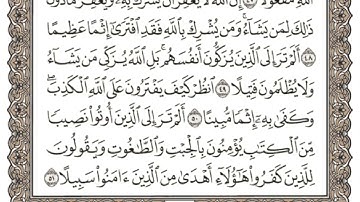 ٱللَّهِ مَفْعُولًا ٤٧ إِنَّ ٱللَّهَ لَا يَغْفِرُ أَن يُشْرَكَ بِهِۦ وَيَغْفِرُ مَا دُونَ
ذَٰلِكَ لِمَن يَشَآءُ ۚ وَمَن يُشْرِكْ بِٱللَّهِ فَقَدِ ٱفْتَرَىٰٓ إِثْمًا عَظِيمًا
٤٨ أَلَمْ تَرَ إِلَى ٱلَّذِينَ يُزَكُّونَ أَنفُسَهُم ۚ بَلِ ٱللَّهُ يُزَكِّى مَن يَشَآءُ
وَلَا يُظْلَمُونَ فَتِيلًا ٤٩ ٱنظُرْ كَيْفَ يَفْتَرُونَ عَلَى ٱللَّهِ ٱلْكَذِبَ ۖ
وَكَفَىٰ بِهِۦٓ إِثْمًا مُّبِينًا ٥٠ أَلَمْ تَرَ إِلَى ٱلَّذِينَ أُوتُوا۟ نَصِيبًا
مِّنَ ٱلْكِتَٰبِ يُؤْمِنُونَ بِٱلْجِبْتِ وَٱلطَّٰغُوتِ وَيَقُولُونَ
لِلَّذِينَ كَفَرُوا۟ هَٰٓؤُلَآءِ أَهْدَىٰ مِنَ ٱلَّذِينَ ءَامَنُوا۟ سَبِيلًا ٥١